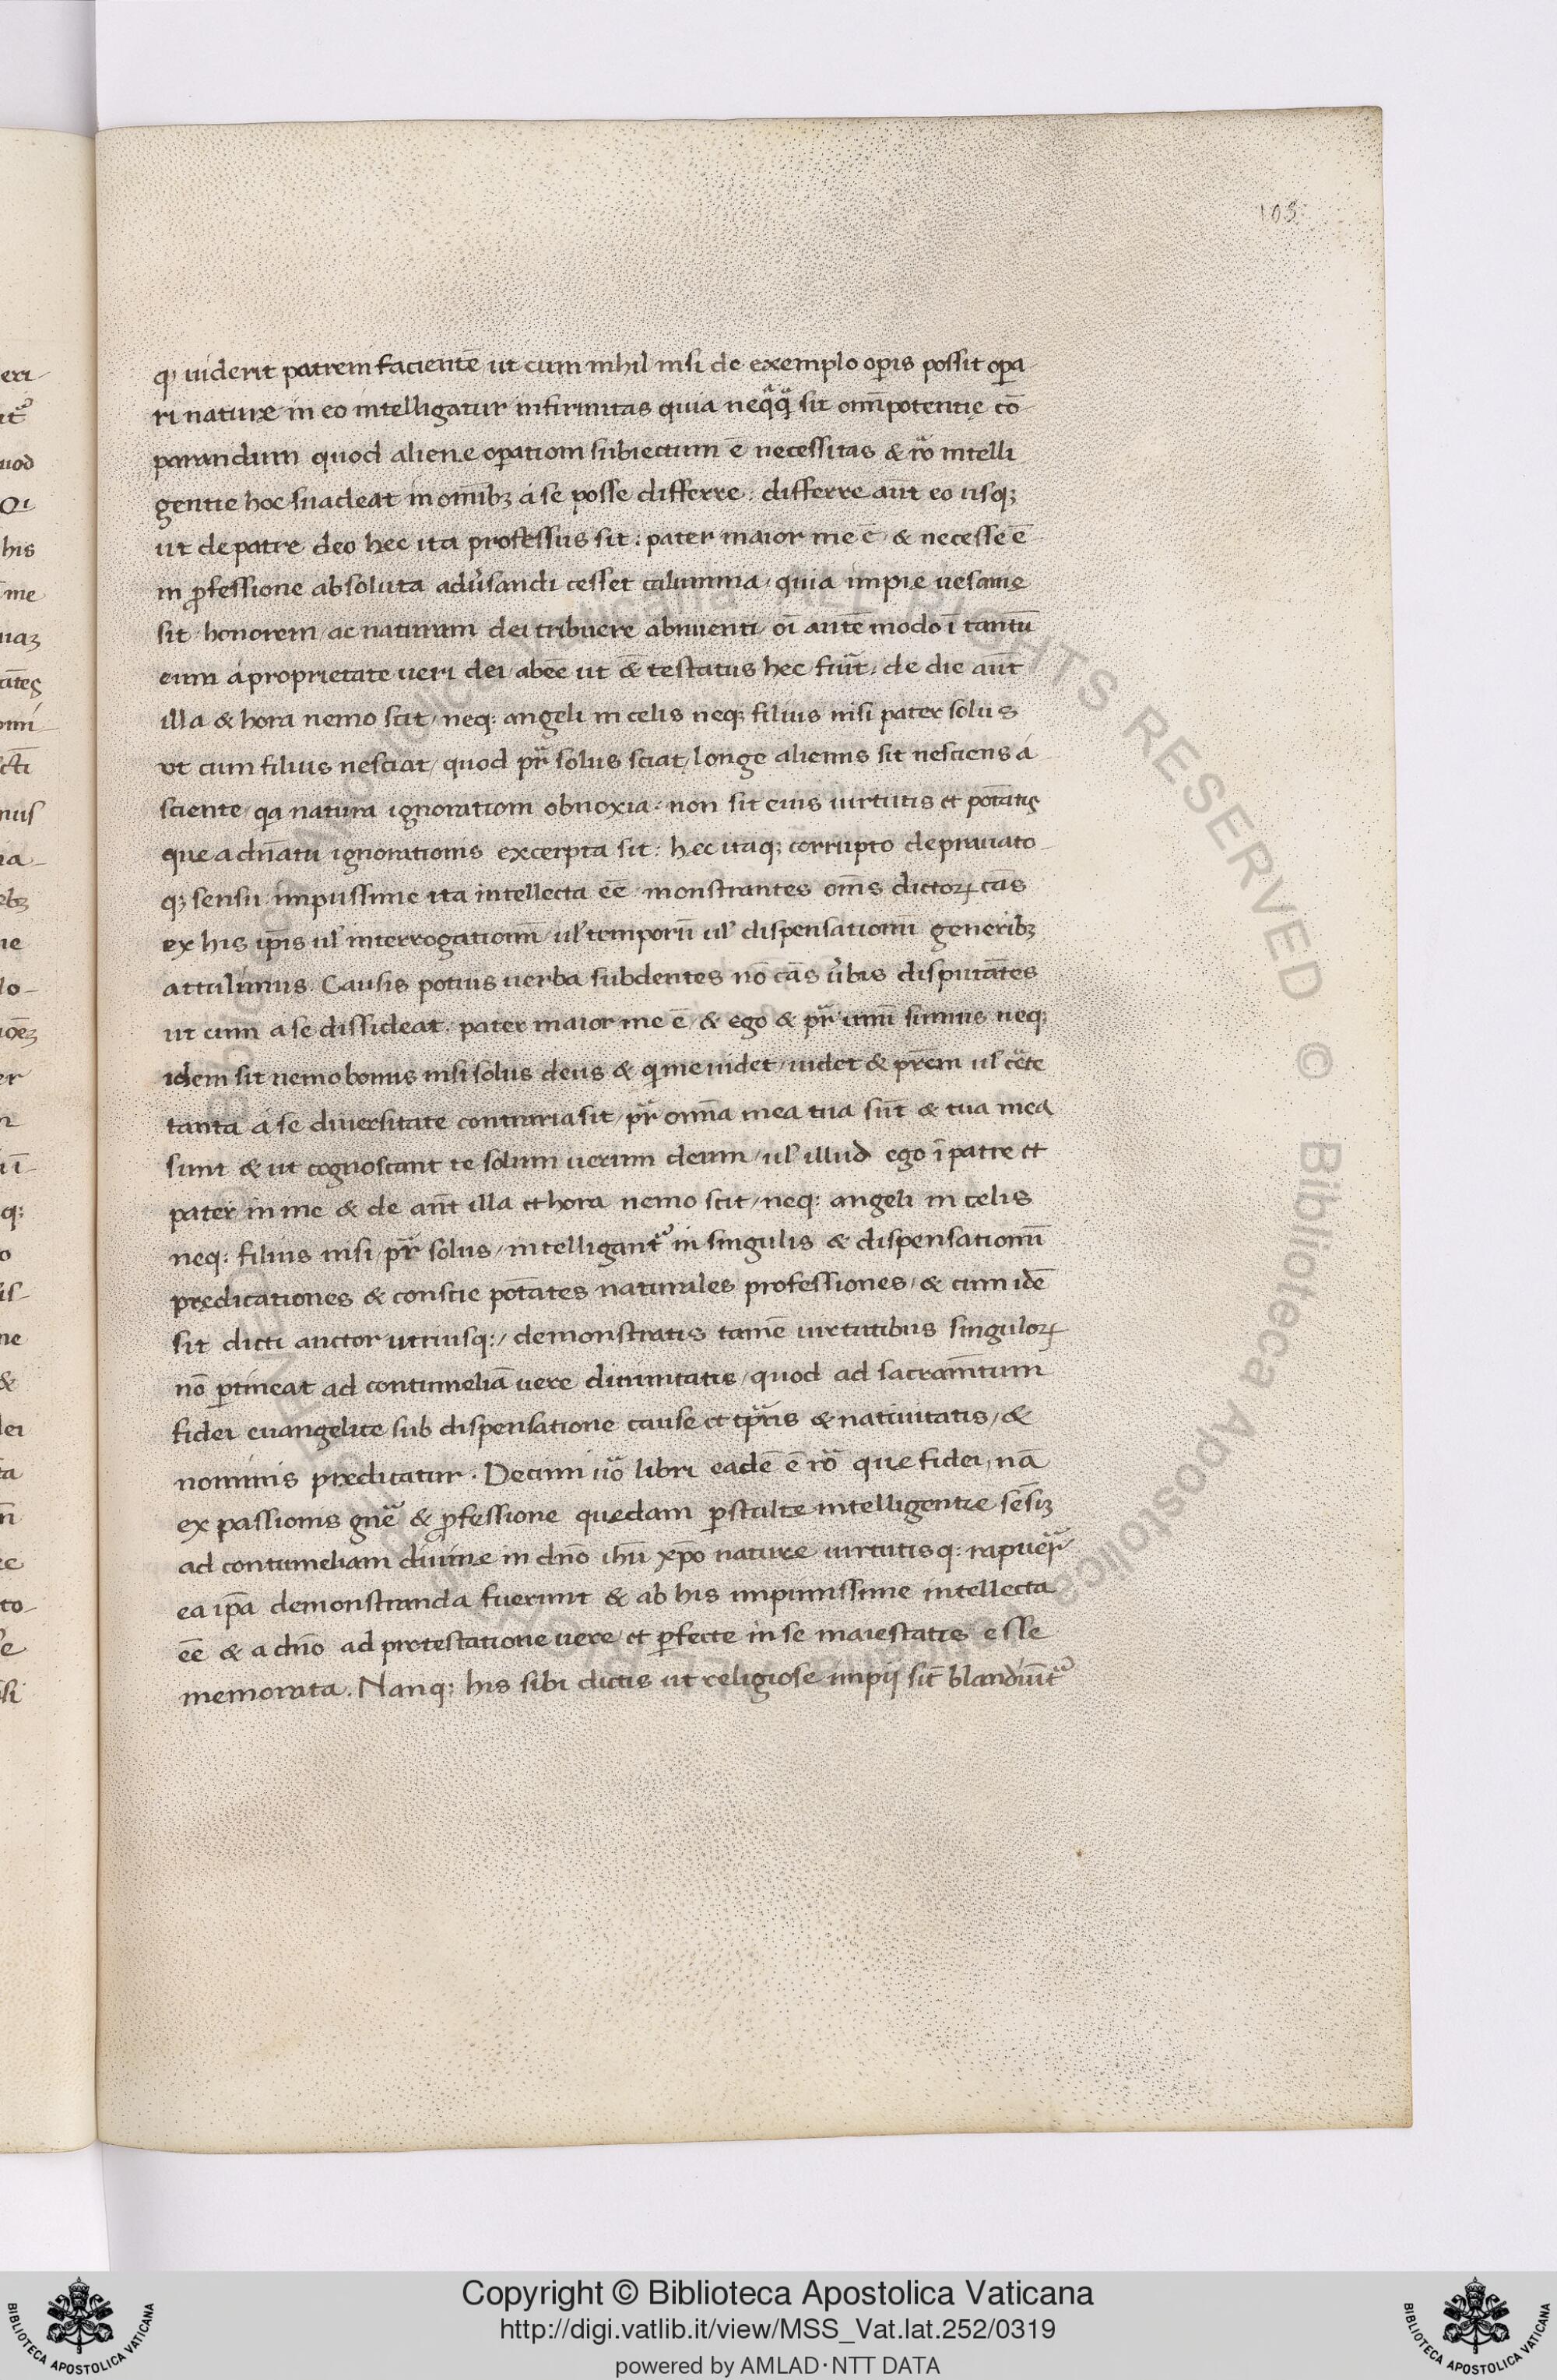 105
q; uiderit patrem facientē ut cum nihil nisi de exemplo opis possit opa
ri nature in eo intelligatur infirmitas quia neq̃q̃ sit omīpotentię cō
parandum quod aliene opationi subiectum ē necessitas & rõ intelli
gentie hoc suadeat in omībꝫ á se posse differre: differre aūt eo usq;
ut de patre deo hec ita professus sit: pater maior me ē & necesse ē
in pfessione absoluta adũsandi cesset calumnia, quia impie uesanię
sit honorem, ac naturam dei tribuere abnuenti, oī autē modo ī tantū
eum á proprietate ueri dei abeē ut & testatus hec fuīt, de die aūt
illa & hora nemo scit, neq: angeli in celis neq; filius nisi pater solus
ut cum filius nesciat, quod pr̃ solus sciat, longe alienus sit nesciens á
sciente, qa natura ignorationi obnoxia, non sit eius uirtutis et potātis
que a dn̄atu ignorationis excerpta sit: hec itaq; corrupto deprauato
q; sensu impiissime ita intellecta eē monstrantes om̄s dictoꝝ cās
ex his ipīs ul̓ interrogationū, ul̓ temporū ul̓ dispensationū generibꝫ
attulimus. Causis potius uerba subdentes nō cās ũbis disputātes
ut cum a se dissideat, pater maior me ē, & ego & pr̃ unū sumus neq;
idem sit nemo bonus nisi solus deus & q me uidet, uidet & prēm ul̓ cēte
tanta á se diuersitate contraria sit, pr̃ omīa mea tua sūt & tua mea
sunt & ut cognoscant te solum uerum deum, ul̓ illud ego ī patre et
pater in me & de aūt illa et hora nemo scit, neq: angeli in celis
neq: filius nisi pr̃ solus, intelligant᷑ in singulis & dispensationū
predicationes & conscie potātes naturales professiones, & cum idē
sit dicti auctor utriusq:, demonstratis tamē uirtutibus singuloꝝ
nō ptineat ad contumeliā uere diuinitatis, quod ad sacramīntum
fidei euangelice sub dispensatione cause et tp̃ris & natiuitatis, &
nominis predicatur. Decimi ũo libri eadē ē rõ que fidei, nā
ex passionis gñe & pfessione quedam p stulte intelligentie sēsū
ad contumeliam diuine in dn̄o ihū xpo nature uirtutisq: rapuer̃
ea ipā demonstranda fuerunt & ab his impiissime intellecta
eē & a dn̄o ad protestatione uere et pfecte in se maiestatis esse
memorata. Nanq; his sibi dictis ut religiose impij sīt blandiūt᷑
Copyright © Biblioteca Apostolica Vaticana
http://digi.vatlib.it/view/MSS_Vat.lat.252/0319
powered by AMLAD·NTT DATA